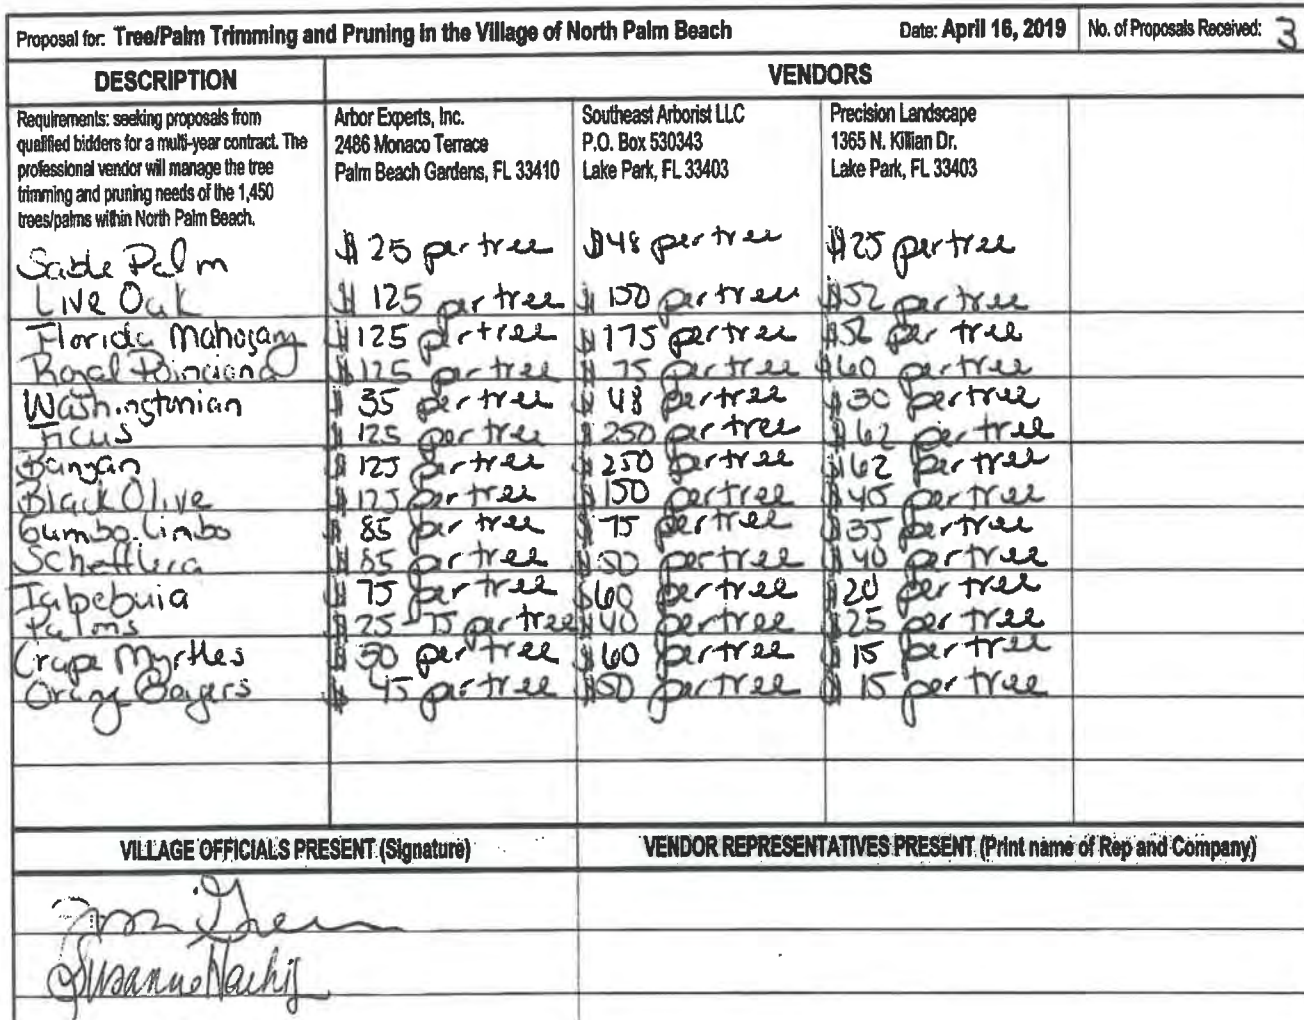 Proposal for: Tree/Palm Trimming and Pruning in the Village of North Palm Beach Date: April 16, 2019 No. of Proposals Received: 3
DESCRIPTION VENDORS
Requirements: seeking proposals from
qualified bidders for a multi-year contract. The
professional vendor will manage the tree
trimming and pruning needs of the 1,450
trees/palms within North Palm Beach.
Arbor Experts, Inc.
2486 Monaco Terrace
Palm Beach Gardens, FL 33410
Southeast Arborist LLC
P.O. Box 530343
Lake Park, FL 33403
Precision Landscape
1365 N. Killian Dr.
Lake Park, FL 33403
Sable Palm $25 per tree $48 per tree $25 per tree
Live Oak $125 per tree $150 per tree $52 per tree
Florida Mahogany $125 per tree $175 per tree $52 per tree
Royal Poinciana $125 per tree $75 per tree $60 per tree
Washingtonian $35 per tree $48 per tree $30 per tree
Ficus $125 per tree $250 per tree $62 per tree
Banyan $125 per tree $250 per tree $62 per tree
Black Olive $125 per tree $150 per tree $45 per tree
Gumbo-Limbo $85 per tree $75 per tree $35 per tree
Schefflera $85 per tree $50 per tree $40 per tree
Tabebuia $75 per tree $60 per tree $20 per tree
Palms $25-75 per tree $40 per tree $25 per tree
Crape Myrtles $50 per tree $60 per tree $15 per tree
Orange Geigers $45 per tree $50 per tree $15 per tree
VILLAGE OFFICIALS PRESENT (Signature) VENDOR REPRESENTATIVES PRESENT (Print name of Rep and Company)
Susanne